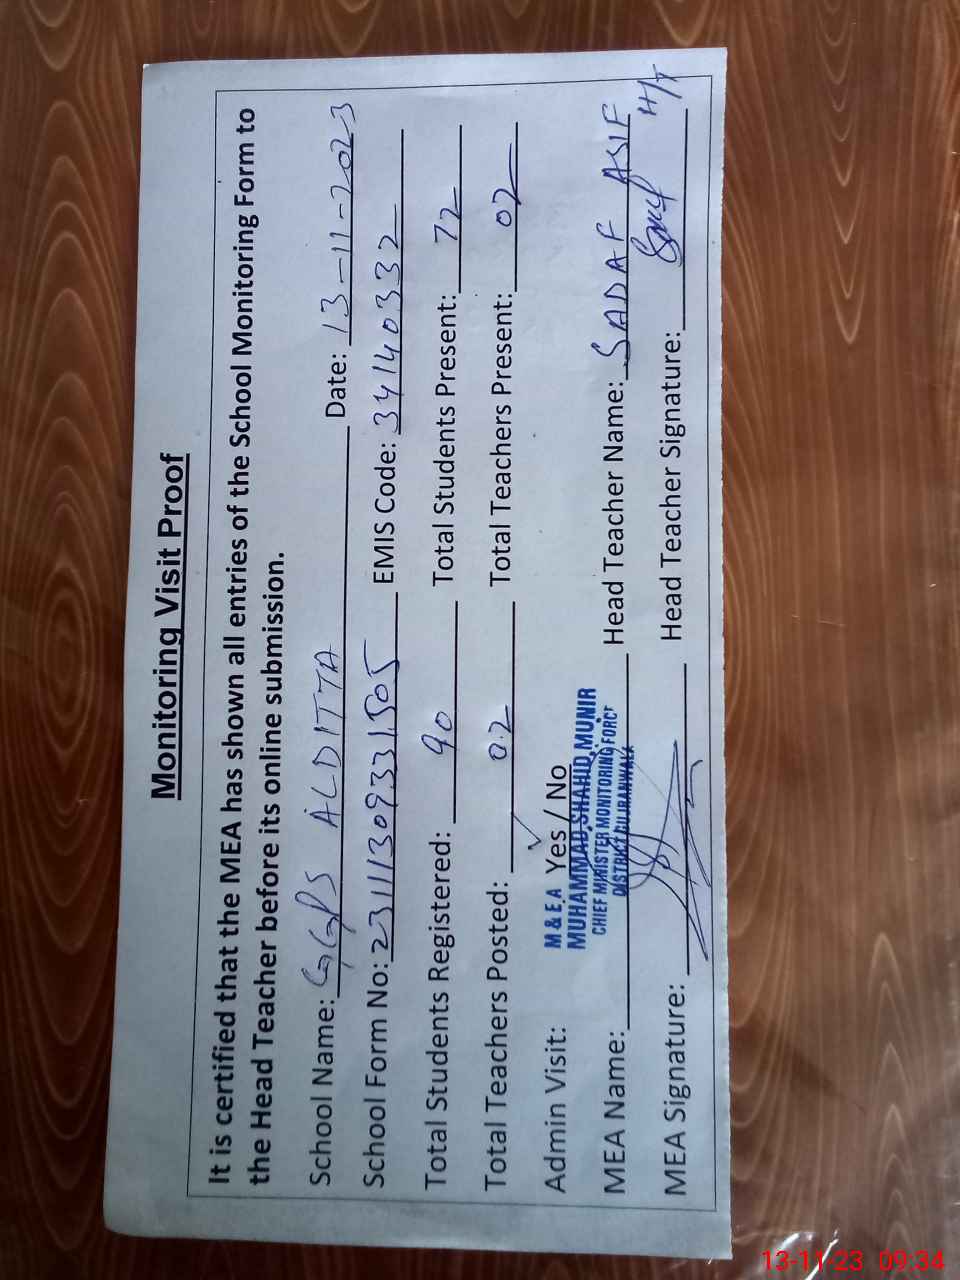 Monitoring Visit Proof
It is certified that the MEA has shown all entries of the School Monitoring Form to
the Head Teacher before its online submission.
School Name: GGPS ALDITTA Date: 13-11-2023
School Form No: 23111309331505 EMIS Code: 34140332
Total Students Registered: 90 Total Students Present: 72
Total Teachers Posted: 02 Total Teachers Present: 02
Admin Visit: Yes / No
M & E.A
MUHAMMAD SHAHID MUNIR
CHIEF MINISTER MONITORING FORCE
DISTRICT GUJRANWALA
MEA Name: Head Teacher Name: SADAF ASIF
MEA Signature: Head Teacher Signature: H/T
13-11-23 09:34